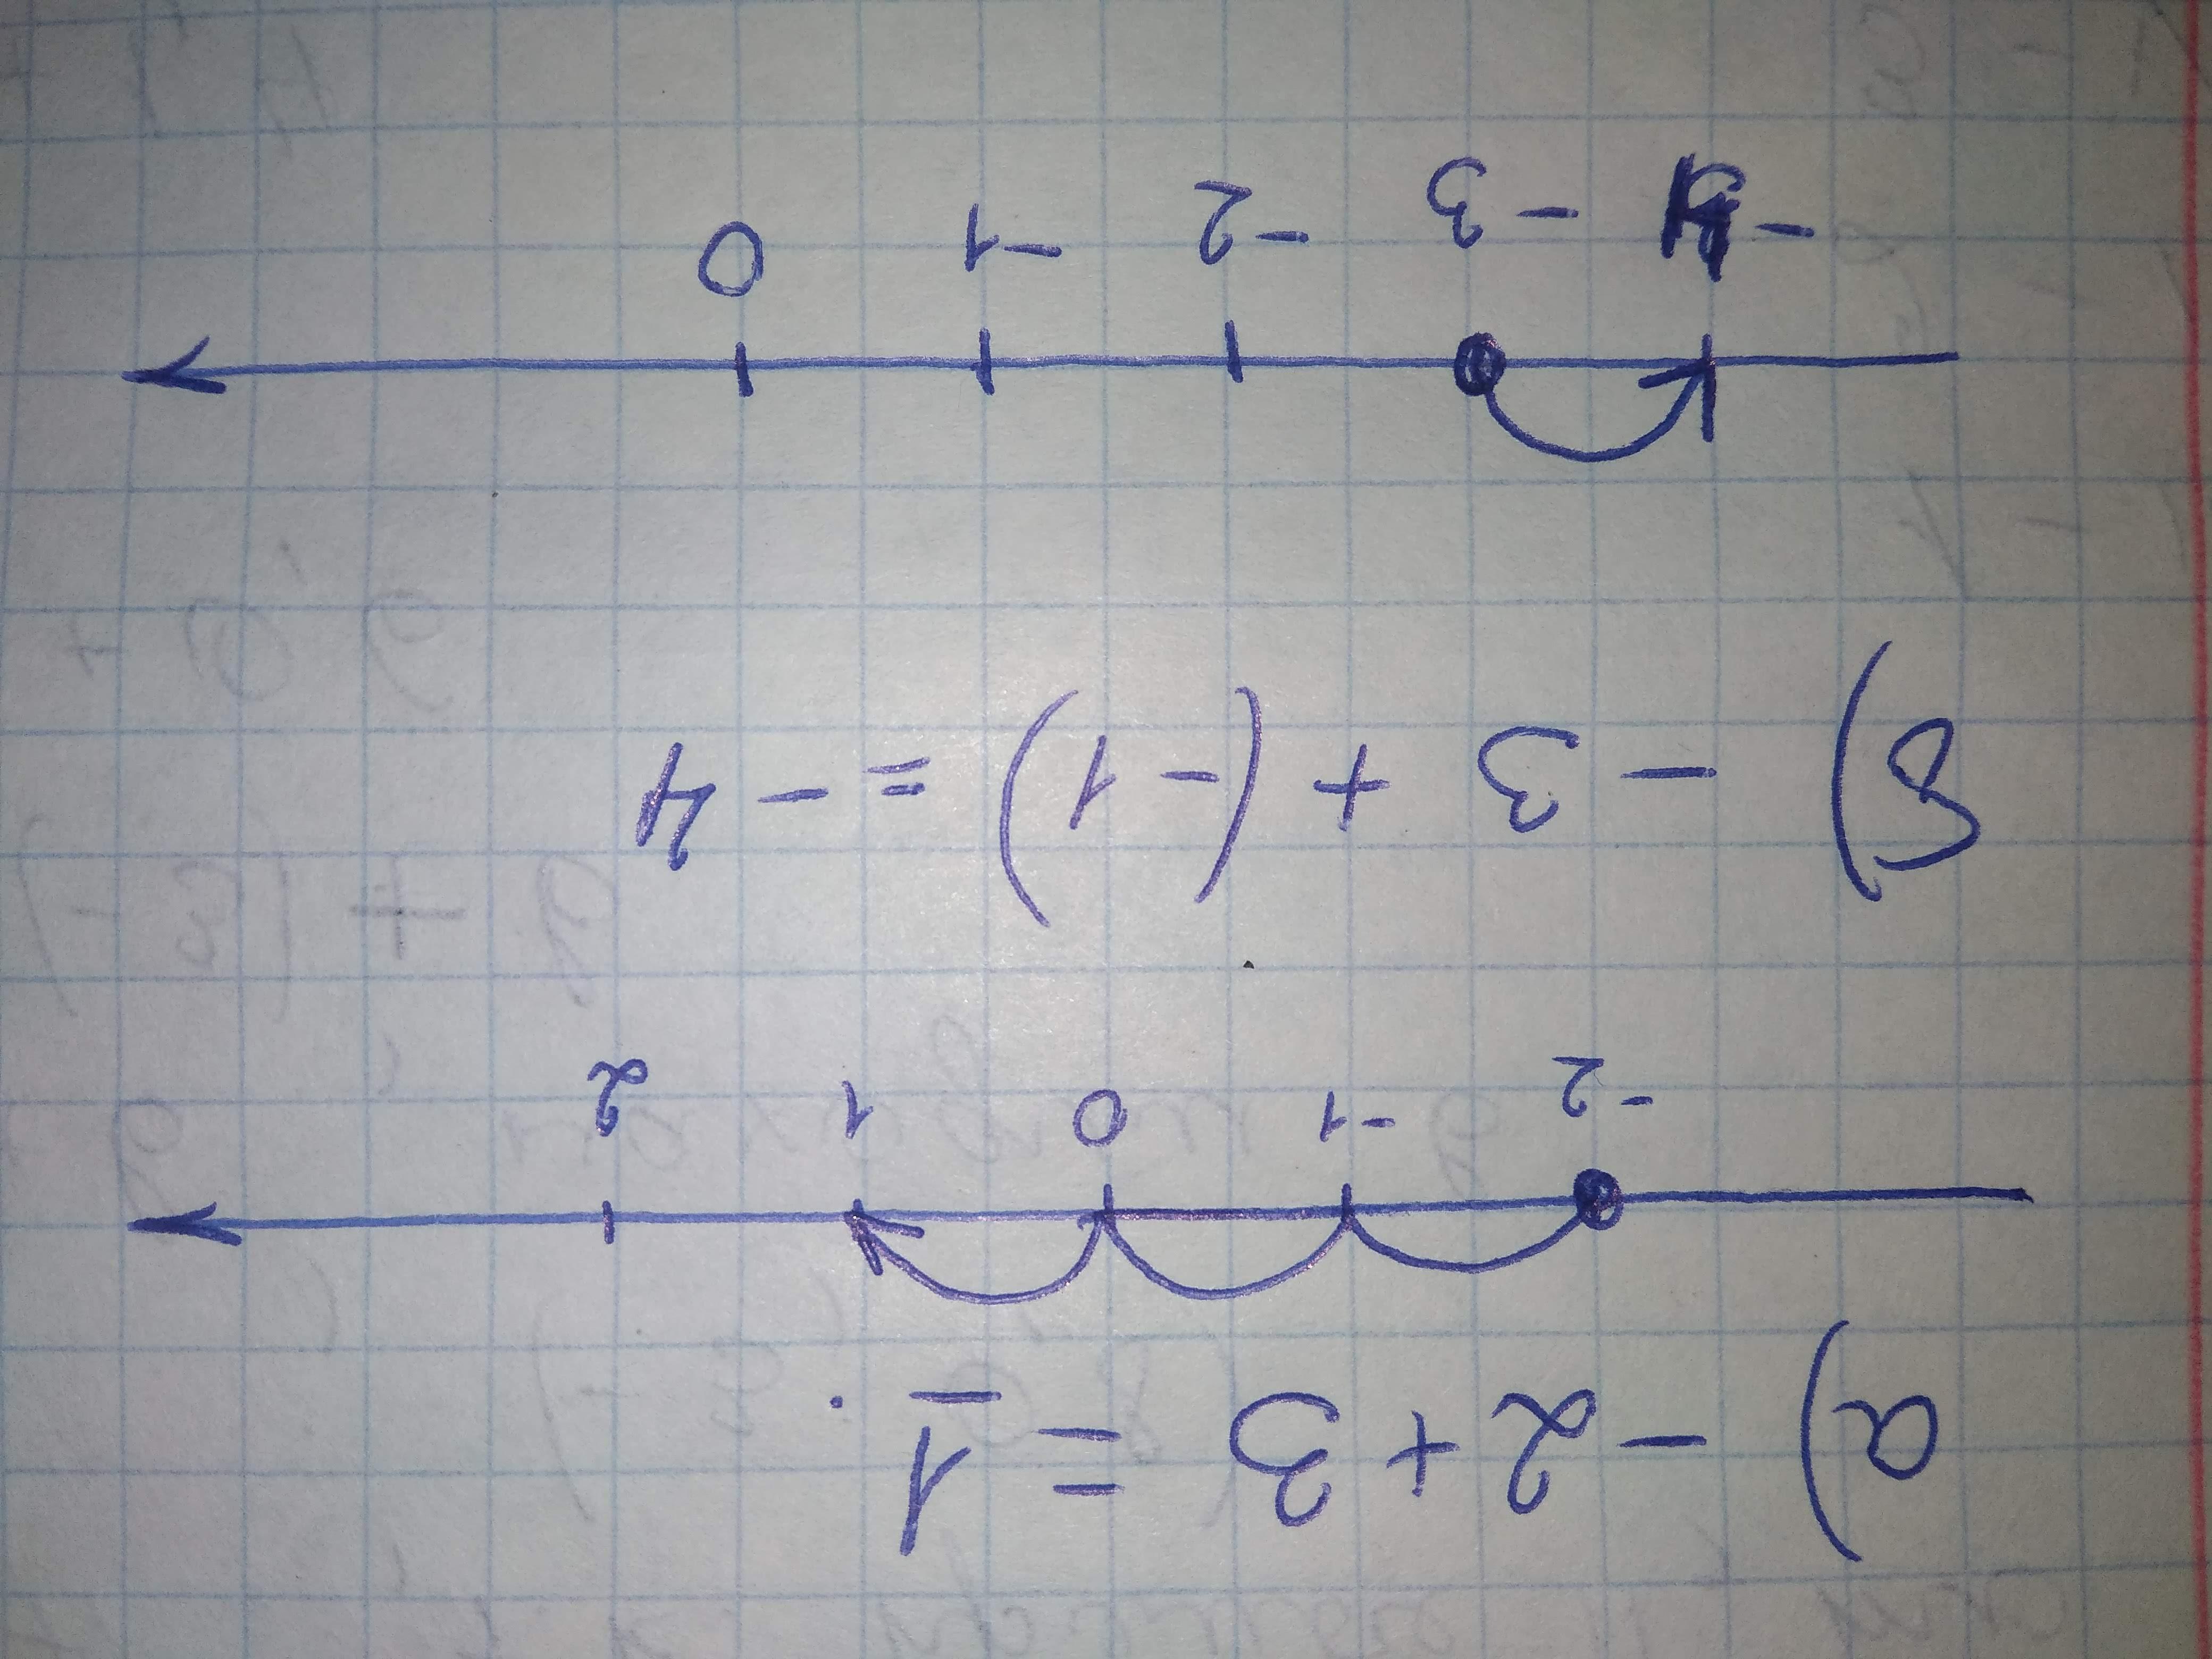 а) -2+3 = 1.
-2 -1 0 1 2
б) -3 + (-1) = -4
-4 -3 -2 -1 0